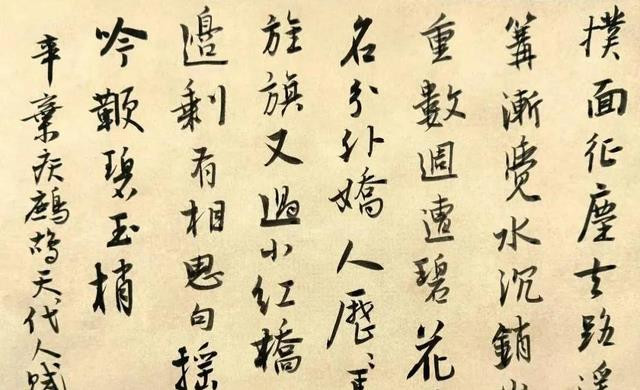 撲面征塵去路遥
篝漸覺水沉銷
重數週遭碧花
名分外嬌人歷〻
旌旗又過小紅橋
邊剩有相思句摇
吟鞭碧玉梢
辛棄疾鷓鴣天代人賦